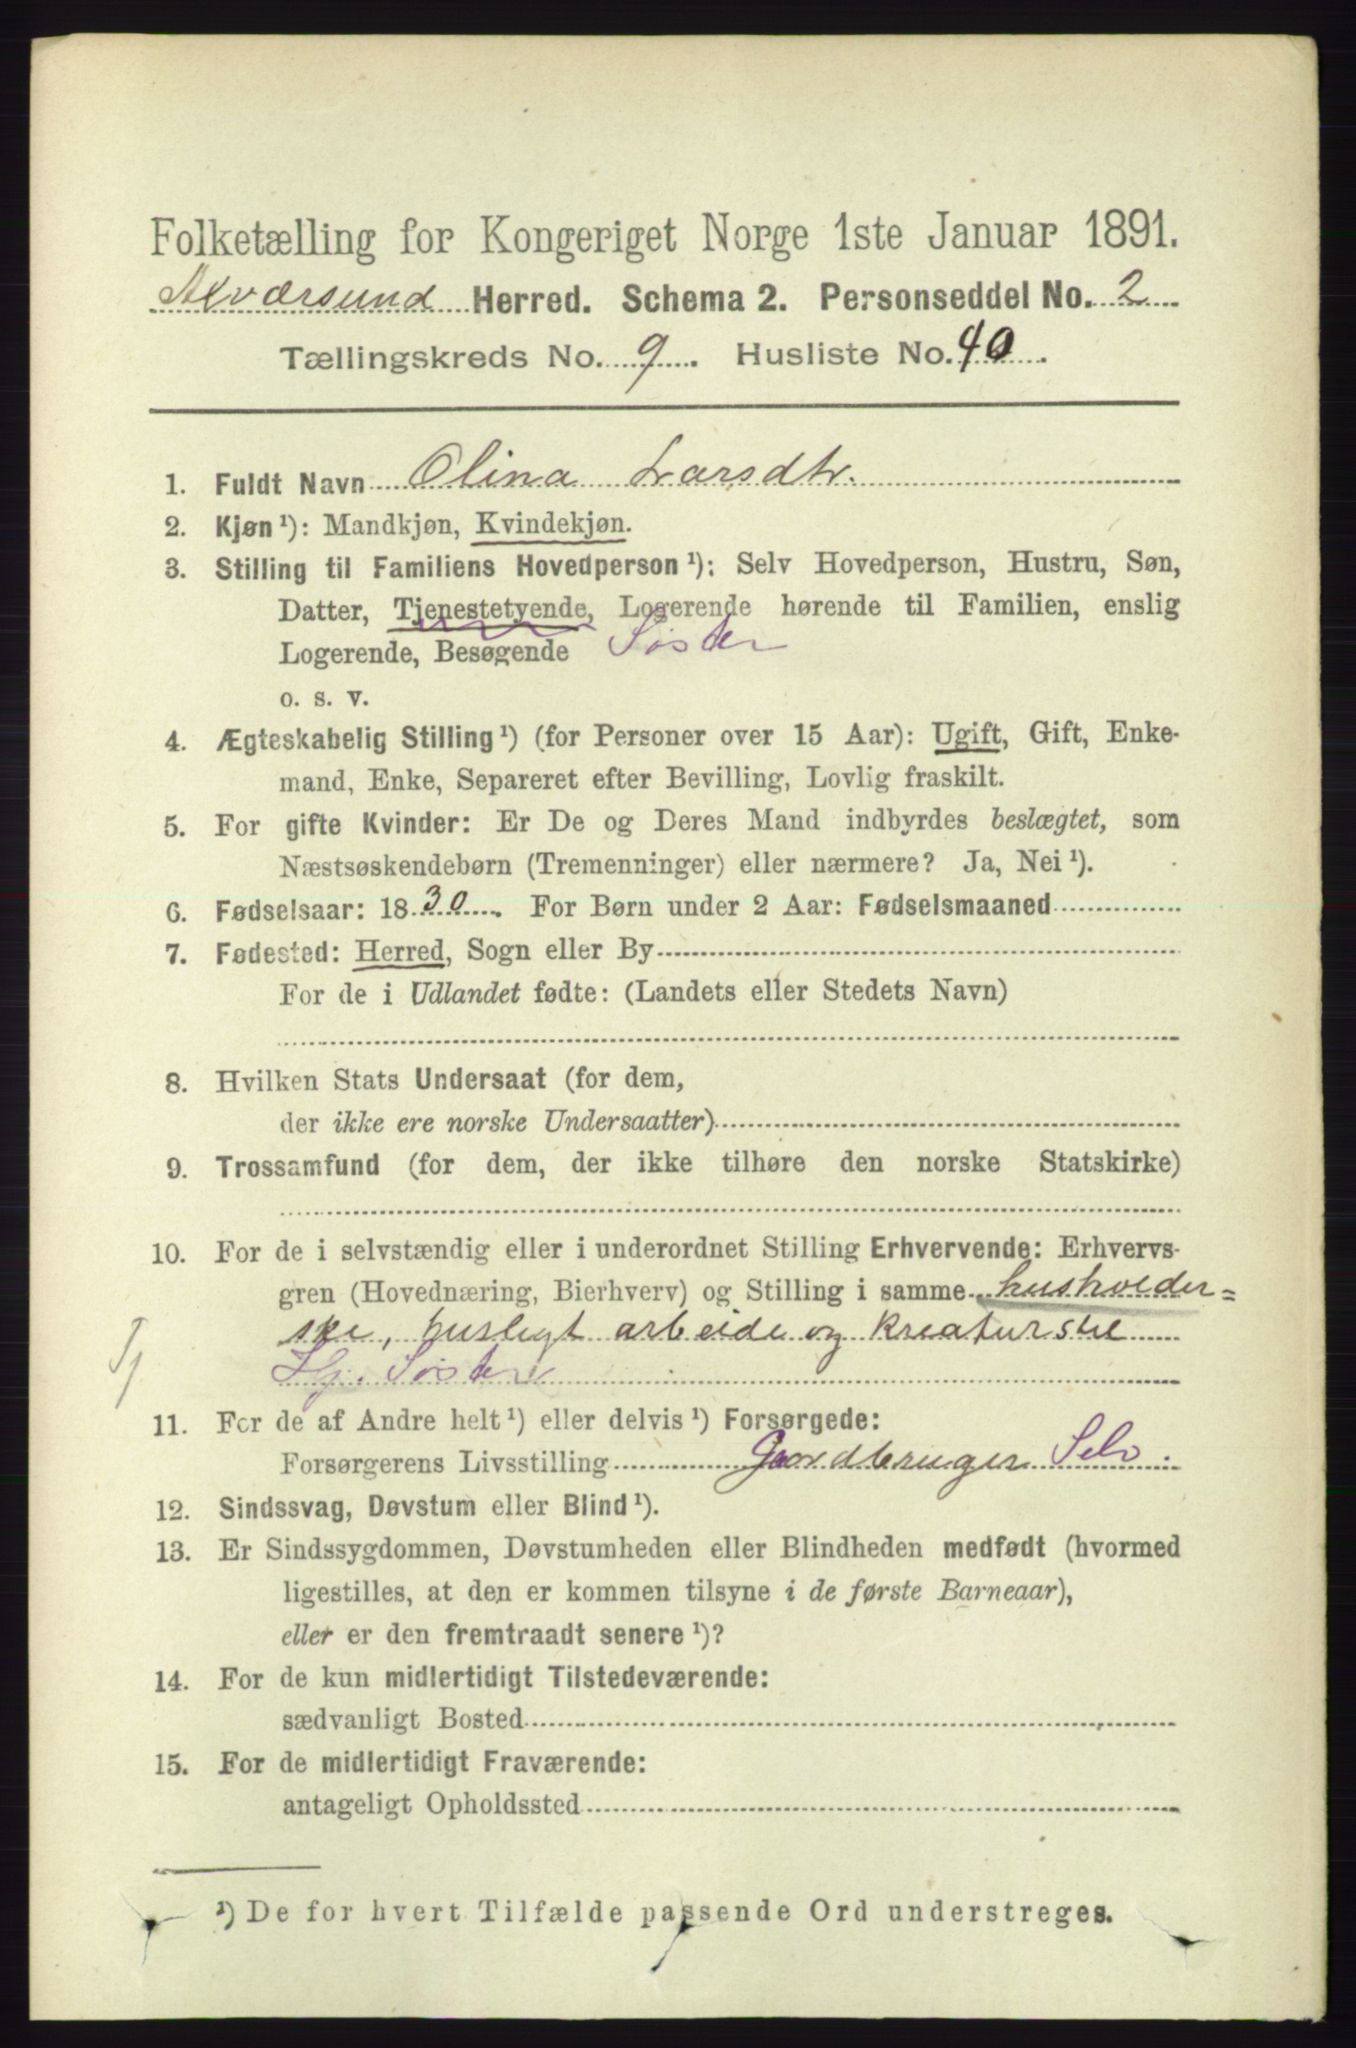 Folketælling for Kongeriget Norge 1ste Januar 1891.
Alværsund Herred. Schema 2. Personseddel No. 2
Tællingskreds No. 9. Husliste No. 40.
1. Fuldt Navn Olina Larsdtr.
2. Kjøn¹): Mandkjøn, Kvindekjøn.
3. Stilling til Familiens Hovedperson¹): Selv Hovedperson, Hustru, Søn,
Datter, Tjenestetyende, Logerende hørende til Familien, enslig
Logerende, Besøgende Søster
o. s. v.
4. Ægteskabelig Stilling¹) (for Personer over 15 Aar): Ugift, Gift, Enke-
mand, Enke, Separeret efter Bevilling, Lovlig fraskilt.
5. For gifte Kvinder: Er De og Deres Mand indbyrdes beslægtet, som
Næstsøskendebørn (Tremenninger) eller nærmere? Ja, Nei¹).
6. Fødselsaar: 1830. For Børn under 2 Aar: Fødselsmaaned
7. Fødested: Herred, Sogn eller By
For de i Udlandet fødte: (Landets eller Stedets Navn)
8. Hvilken Stats Undersaat (for dem,
der ikke ere norske Undersaatter)
9. Trossamfund (for dem, der ikke tilhøre den norske Statskirke)
10. For de i selvstændig eller i underordnet Stilling Erhvervende: Erhvervs-
gren (Hovednæring, Bierhverv) og Stilling i samme husholder=
ske, husligt arbeide og kreaturstel
Tj
Hj. Søster
11. For de af Andre helt¹) eller delvis¹) Forsørgede:
Forsørgerens Livsstilling Gaardbruger Selv.
12. Sindssvag, Døvstum eller Blind¹).
13. Er Sindssygdommen, Døvstumheden eller Blindheden medfødt (hvormed
ligestilles, at den er kommen tilsyne i de første Barneaar),
eller er den fremtraadt senere¹)?
14. For de kun midlertidigt Tilstedeværende:
sædvanligt Bosted
15. For de midlertidigt Fraværende:
antageligt Opholdssted
¹) De for hvert Tilfælde passende Ord understreges.